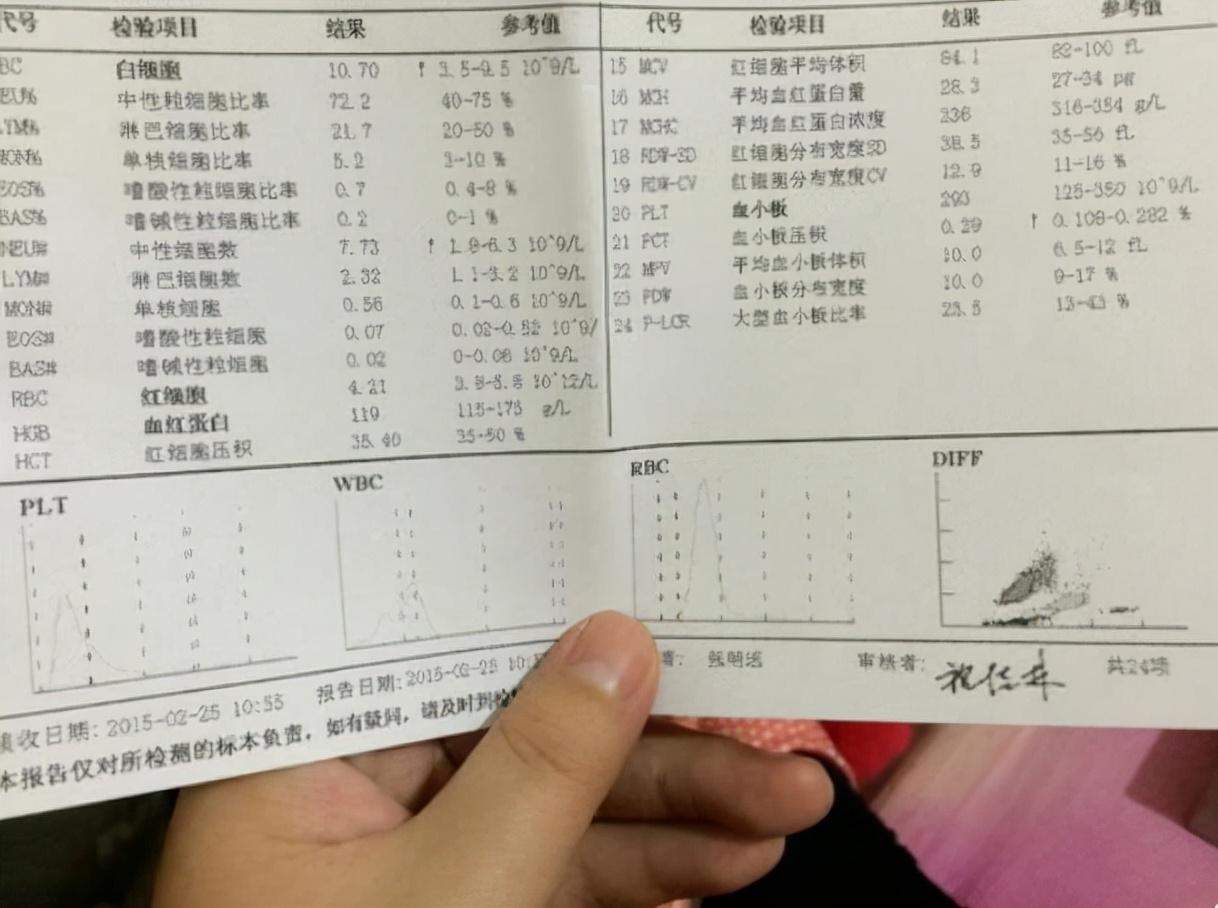 代号 检验项目 结果 参考值
BC 白细胞 10.70 ↑ 3.5-9.5 10^9/L
EU% 中性粒细胞比率 72.2 40-75 %
LYM% 淋巴细胞比率 21.7 20-50 %
MON% 单核细胞比率 5.2 3-10 %
EOS% 嗜酸性粒细胞比率 0.7 0.4-8 %
BAS% 嗜碱性粒细胞比率 0.2 0-1 %
NEU# 中性细胞数 7.73 ↑ 1.8-6.3 10^9/L
LYM# 淋巴细胞数 2.32 1.1-3.2 10^9/L
MON# 单核细胞 0.56 0.1-0.6 10^9/L
EOS# 嗜酸性粒细胞 0.07 0.02-0.52 10^9/
BAS# 嗜碱性粒细胞 0.02 0-0.06 10^9/L
RBC 红细胞 4.21 10^12/L
HGB 血红蛋白 119 115-175 g/L
HCT 红细胞压积 35.40 35-50 %
代号 检验项目 结果 参考值
15 MCV 红细胞平均体积 84.1 82-100 fL
16 MCH 平均血红蛋白量 28.3 27-34 pg
17 MCHC 平均血红蛋白浓度 336 316-354 g/L
18 RDW-SD 红细胞分布宽度SD 38.5 35-56 fL
19 RDW-CV 红细胞分布宽度CV 12.9 11-16 %
20 PLT 血小板 293 125-350 10^9/L
21 PCT 血小板压积 0.29 ↑ 0.108-0.282 %
22 MPV 平均血小板体积 10.0 6.5-12 fL
23 PDW 血小板分布宽度 10.0 9-17 %
24 P-LCR 大型血小板比率 23.5 13-43 %
PLT WBC RBC DIFF
接收日期: 2015-02-25 10:55 报告日期: 2015-02-25 审核者: 共24项
本报告仅对所检测的标本负责，如有疑问，请及时到检